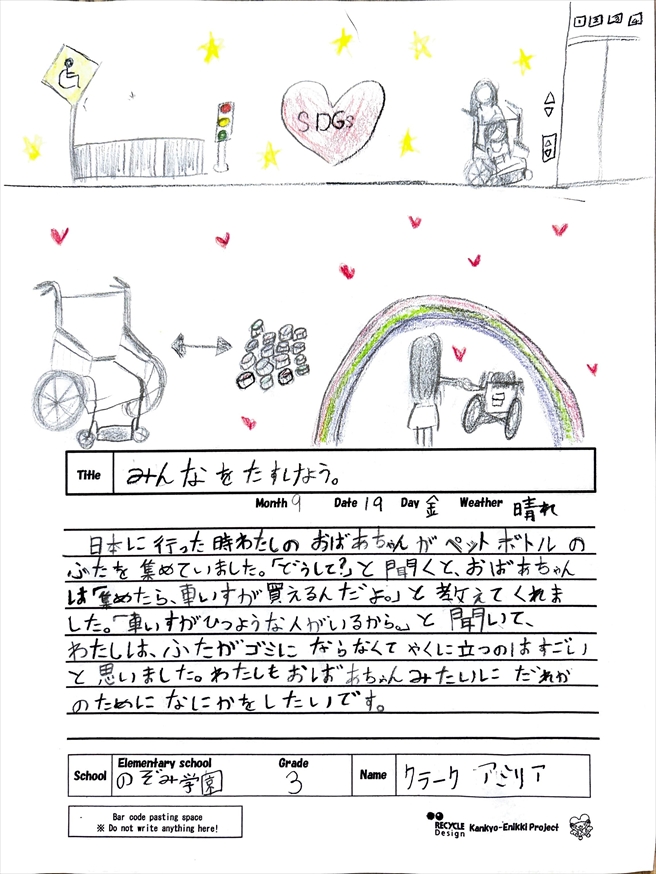 1 2 3 4
SDGs
Title みんなをたすけよう。
Month 9 Date 19 Day 金 Weather 晴れ
日本に行った時わたしのおばあちゃんがペットボトルの
ふたを集めていました。「どうして?」と聞くと、おばあちゃん
は「集めたら、車いすが買えるんだよ。」と教えてくれま
した。「車いすがひつような人がいるから。」と聞いて、
わたしは、ふたがゴミにならなくてやくに立つのはすごい
と思いました。わたしもおばあちゃんみたいにだれか
のためになにかをしたいです。
School Elementary school のぞみ学園 Grade 3 Name クラーク アミリア
Bar code pasting space
※ Do not write anything here!
RECYCLE Design Kankyo-Enikki Project